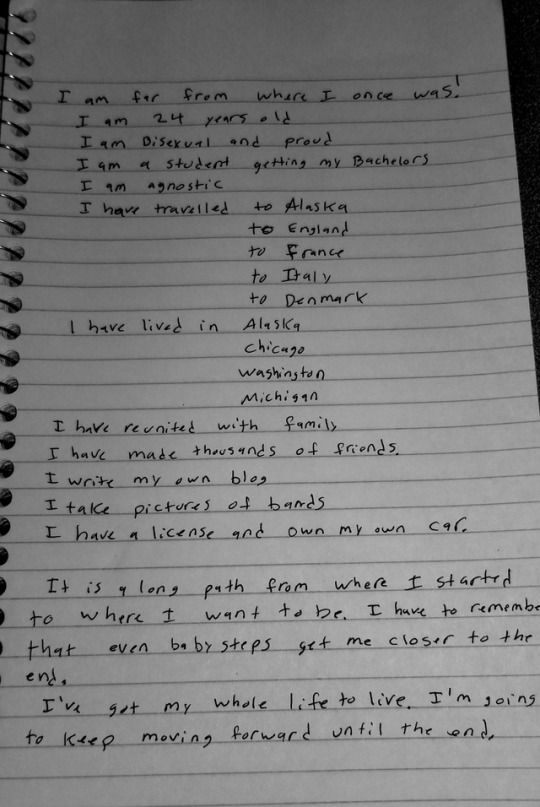 I am far from where I once was!
I am 24 years old
I am Bisexual and proud
I am a student getting my Bachelors
I am agnostic
I have travelled to Alaska
to England
to France
to Italy
to Denmark
I have lived in Alaska
Chicago
Washington
Michigan
I have reunited with family
I have made thousands of friends.
I write my own blog
I take pictures of bands
I have a license and own my own car.
It is a long path from where I started
to where I want to be. I have to remembe
that even baby steps get me closer to the
end.
I've got my whole life to live. I'm going
to keep moving forward until the end.